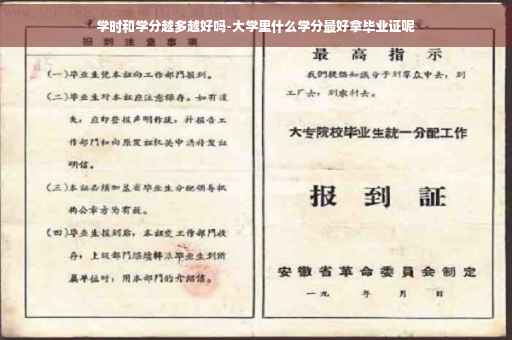 学时和学分越多越好吗-大学里什么学分最好拿毕业证呢
报到注意事项
(一)毕业生凭本证向工作部门报到。
(二)毕业生对本证应注意保存。如有遗
失,应即登报声明作废,并报告工
作部门和向原发证机关申请补发证
明信。
(三)本证必须加盖省毕业生分配领导机
构公章方为有效。
(四)毕业生报到后,本证交工作部门收
存;上级部门继续转派毕业生到所
属单位时,用本部门的介绍信。
最高指示
我们提倡知识分子到群众中去,到
工厂去,到农村去。
大专院校毕业生統一分配工作
报到証
安徽省革命委員会制定
一九 年 月 日